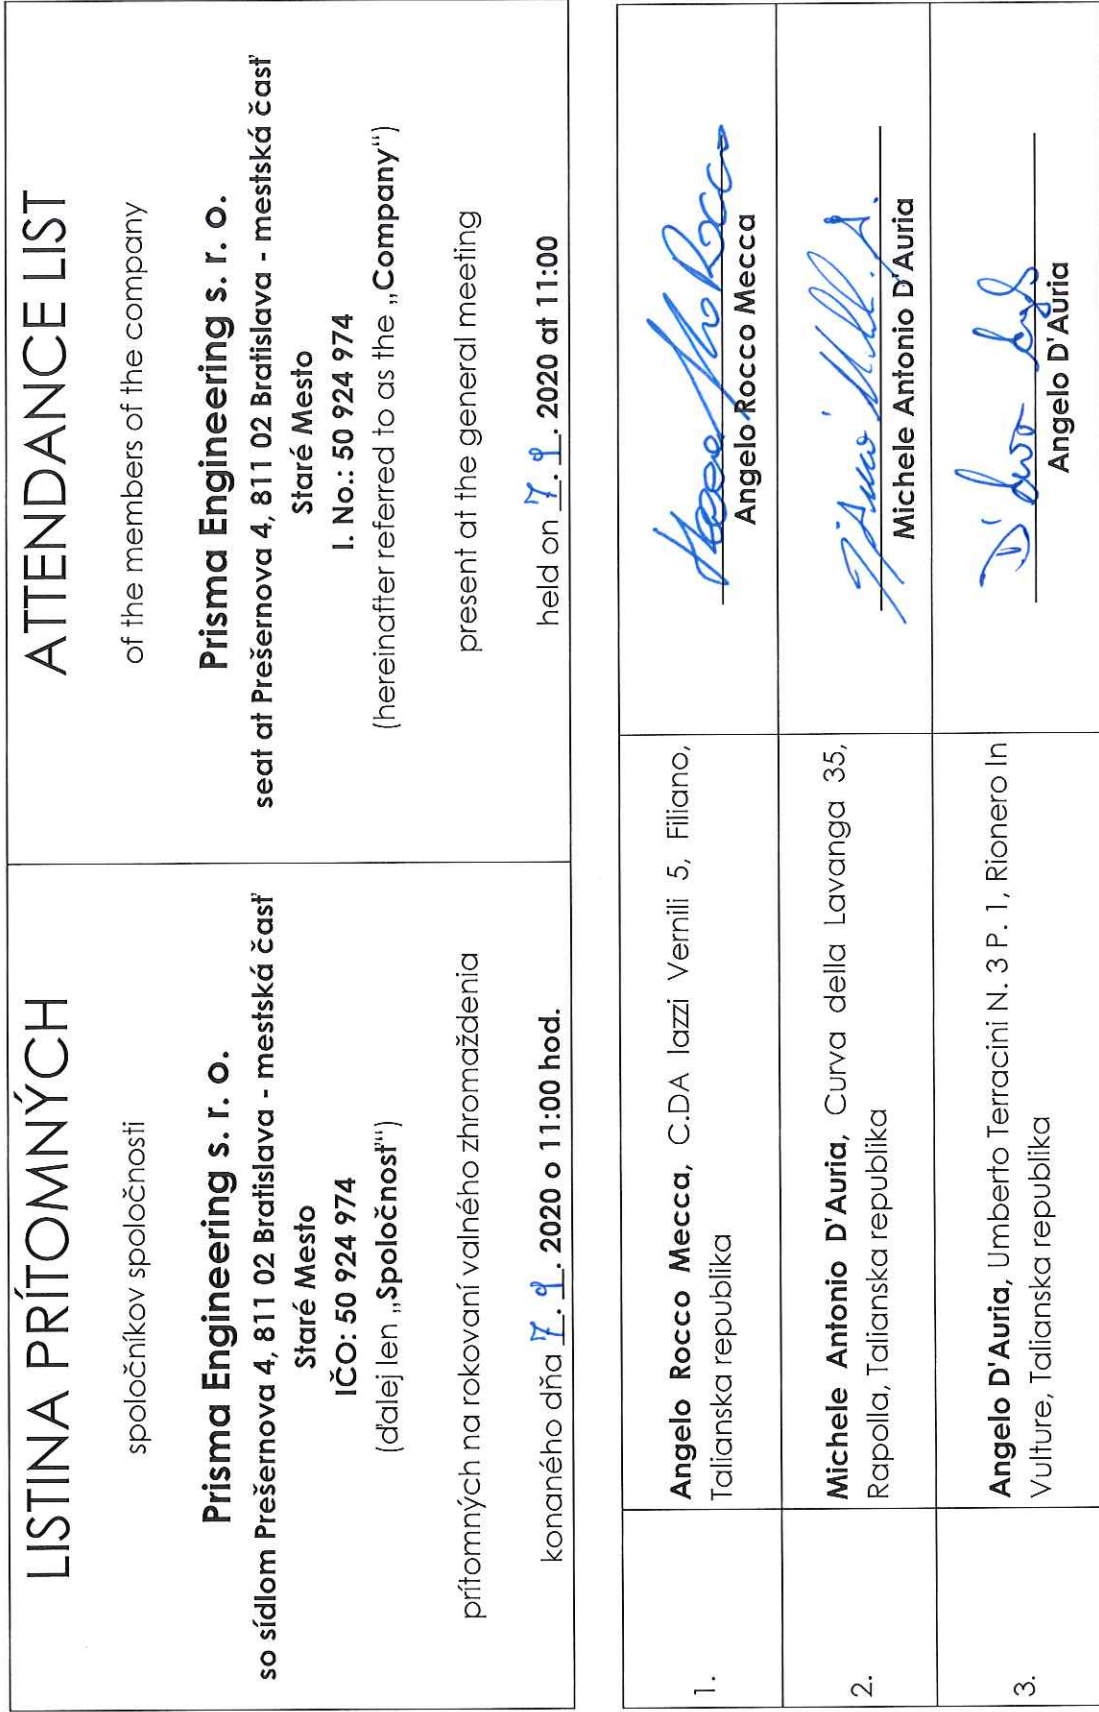 LISTINA PRÍTOMNÝCH
spoločníkov spoločnosti
Prisma Engineering s. r. o.
so sídlom Prešernova 4, 811 02 Bratislava - mestská časť
Staré Mesto
IČO: 50 924 974
(ďalej len „Spoločnosť“)
prítomných na rokovaní valného zhromaždenia
konaného dňa 7. 9. 2020 o 11:00 hod.
ATTENDANCE LIST
of the members of the company
Prisma Engineering s. r. o.
seat at Prešernova 4, 811 02 Bratislava - mestská časť
Staré Mesto
I. No.: 50 924 974
(hereinafter referred to as the „Company“)
present at the general meeting
held on 7. 9. 2020 at 11:00
1.
Angelo Rocco Mecca, C.DA Iazzi Vernili 5, Filiano,
Talianska republika
Angelo Rocco Mecca
2.
Michele Antonio D'Auria, Curva della Lavanga 35,
Rapolla, Talianska republika
Michele Antonio D'Auria
3.
Angelo D'Auria, Umberto Terracini N. 3 P. 1, Rionero In
Vulture, Talianska republika
Angelo D'Auria